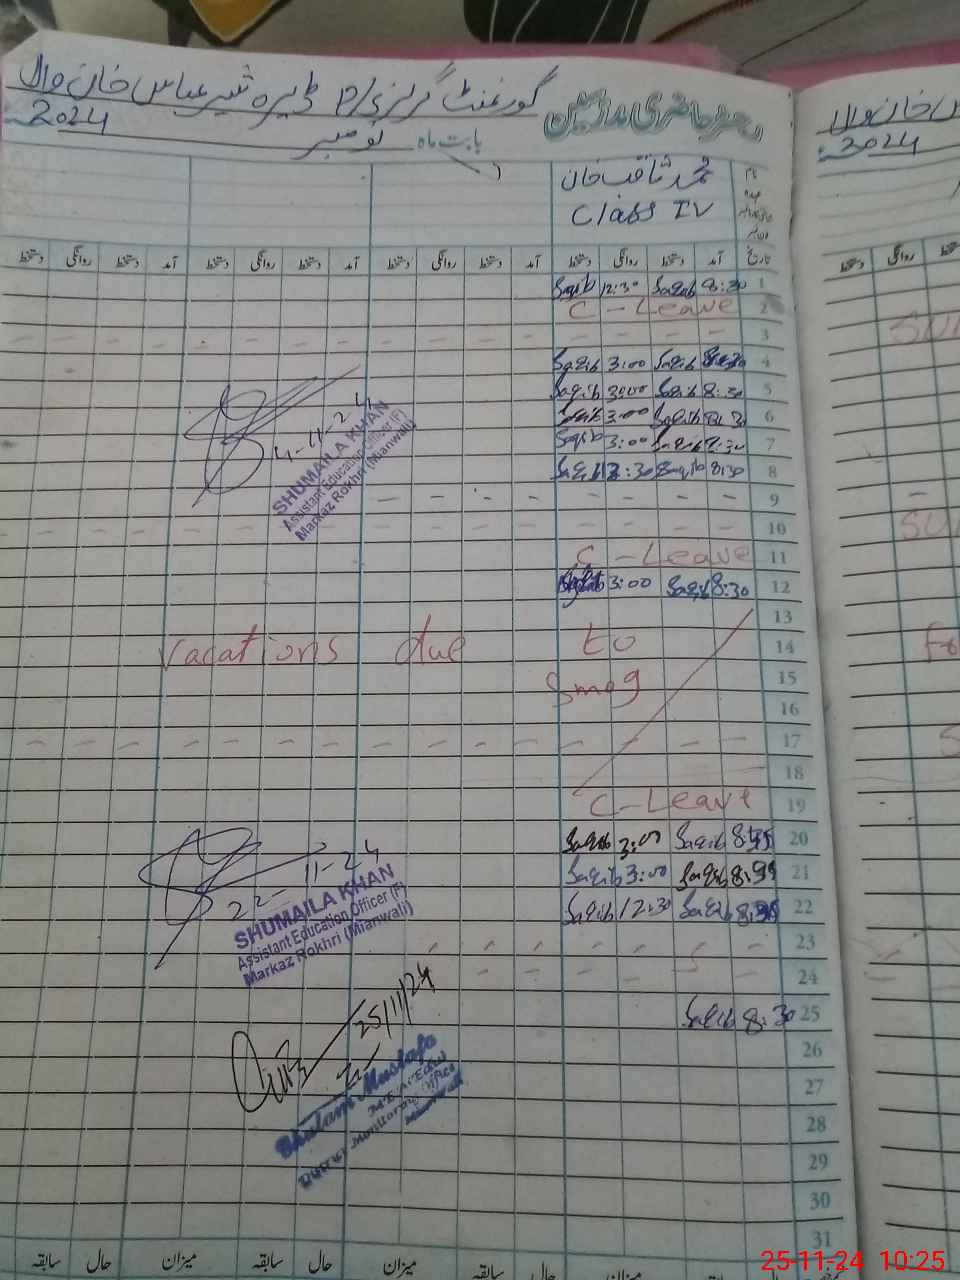 رجسٹر حاضری ملازمین گورنمنٹ گرلز P/ ڈیرہ شیر عباس خان والا
بابت ماہ نومبر 2024
نام محمد ثاقب خان
عہدہ Class IV
تاریخ آمد دستخط روانگی دستخط آمد دستخط روانگی دستخط آمد دستخط روانگی دستخط
1 8:30 Saqib 12:30 Saqib
2 C-Leave
3
4 Saqib 3:00 Saqib
5 8:30 Saqib 3:00 Saqib
6 Saqib 3:00
7 8:30 Saqib 3:00 Saqib
8 8:30 Saqib 12:30 Saqib
4-11-24
SHUMAILA KHAN
Assistant Education Officer (F)
Markaz Rokhri (Mianwali)
9
10
11 C-Leave
12 8:30 Saqib 3:00
13
14 vacations due to
15 Smog
16
17
18
19 C-Leave
20 Saqib 3:00 Saqib
21 Saqib 3:00 Saqib
22 Saqib 12:30 Saqib
22-11-24
SHUMAILA KHAN
Assistant Education Officer (F)
Markaz Rokhri (Mianwali)
23
24
25 8:30 Saqib
25/11/24
Ghulam Mustafa
District Monitoring Office
Mianwali
26
27
28
29
30
31
میزان حال سابقہ میزان حال سابقہ میزان حال سابقہ
خان والا
2024
دستخط روانگی
25-11-24 10:25